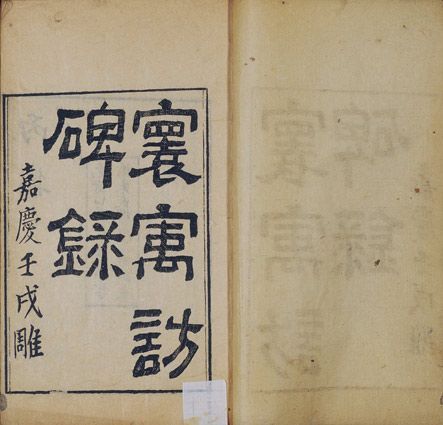 寰寓訪
碑錄
嘉慶壬戌雕